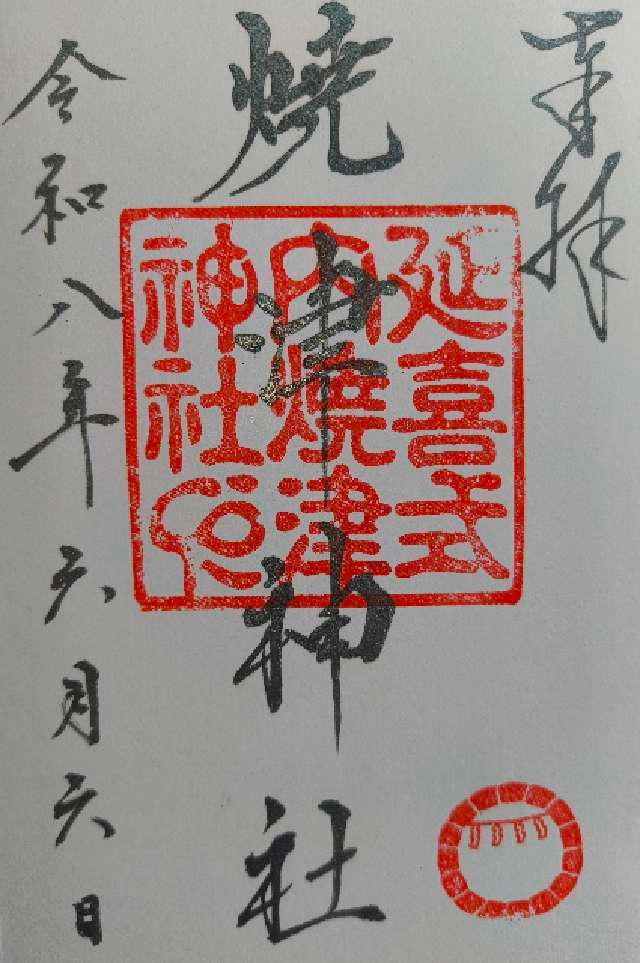 奉拝
焼津神社
延喜式
内焼津
神社印
令和八年六月六日